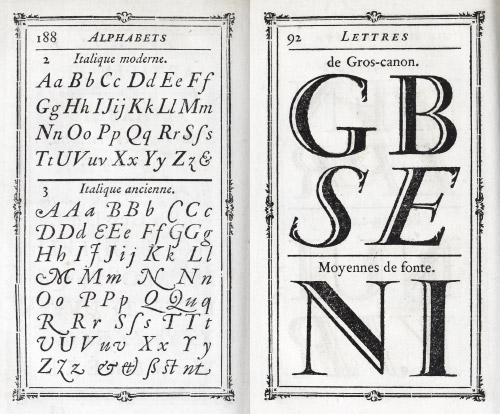 188 ALPHABETS
2 Italique moderne.
Aa Bb Cc Dd Ee Ff
Gg Hh IJij Kk Ll Mm
Nn Oo Pp Qq Rr Sſs
Tt UVuv Xx Yy Zz &
3 Italique ancienne.
AA a BB b CC c
DD d EE e Ff GG g
Hh IJ Jij Kk Ll
MM m NN n
Oo PP p QQu q
RR r Sſs TT t
UU V uv Xx Y y
ZZ z & & ß st nt
92 LETTRES
de Gros-canon.
GB
SE
Moyennes de fonte.
NI